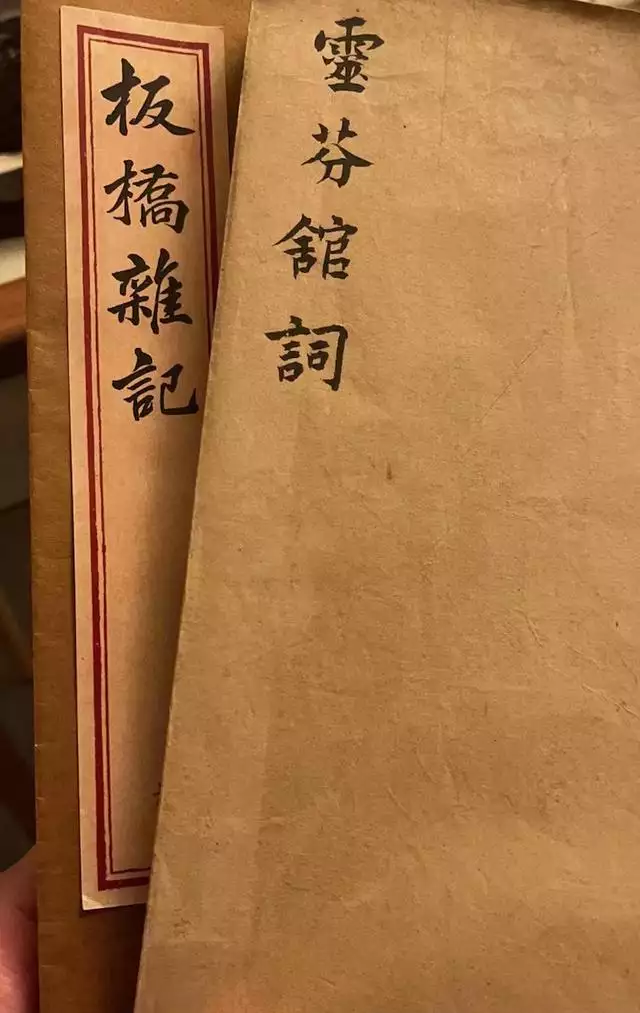 靈芬舘詞
板橋雜記